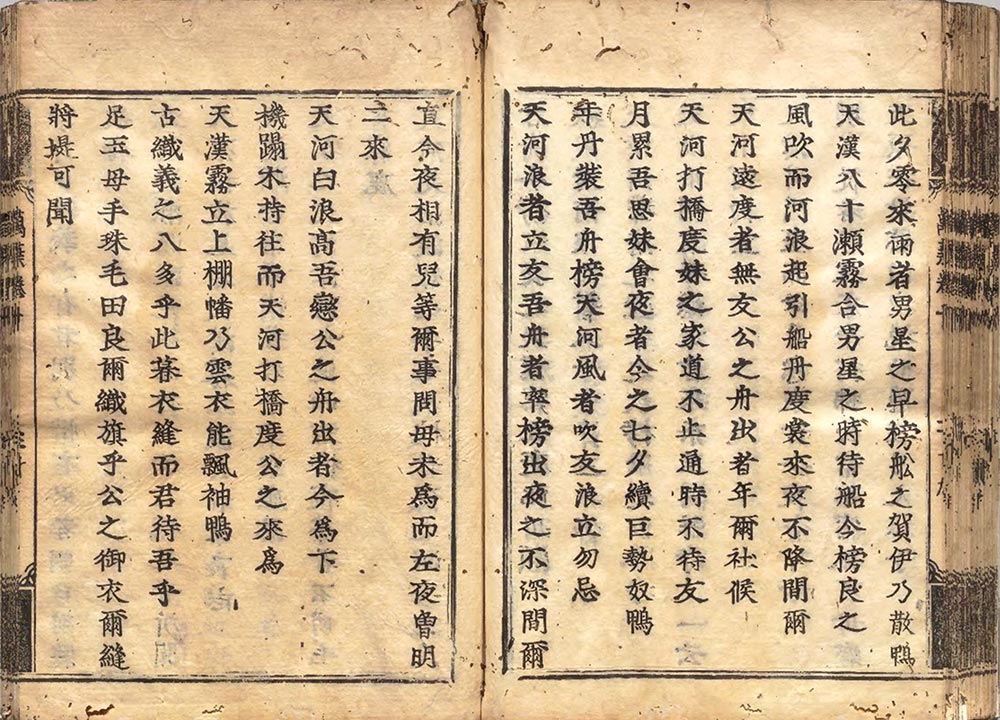 此夕零來雨者男星之早榜舩之賀伊乃散鴨
天漢八十瀬霧合男星之時待船今榜良之
風吹而河浪起引船丹度裳來夜不降間爾
天河遠度者無友公之舟出者年爾社候
天河打橋度妹之家道不止通時不待友
月累吾思妹會夜者今之七夕續巨勢奴鴨
年丹裝吾舟榜天河風者吹友浪立勿忌
天河浪者立友吾舟者率榜出夜之不深間爾
直今夜相有兒等爾事問母未爲而左夜曽明
二來
天河白浪高吾戀公之舟出者今爲下
機蹋木持往而天河打橋度公之來爲
天漢霧立上棚幡乃雲衣能飄袖鴨
古織義之八多乎此暮衣縫而君待吾乎
足玉母手珠毛田良爾織旗乎公之御衣爾縫
將堪可聞